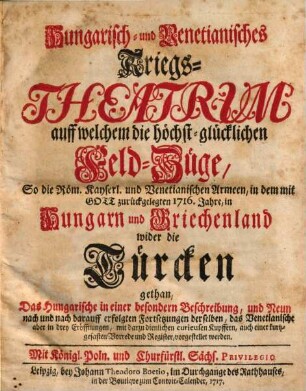 Hungarisch- und Venetianisches
Kriegs-
THEATRUM
auff welchem die höchst-glücklichen
Feld-Züge,
So die Röm. Kayserl. und Venetianischen Armeen, in dem mit
GOTT zurückgelegten 1716. Jahre, in
Hungarn und Griechenland
wider die
Türcken
gethan,
Das Hungarische in einer besondern Beschreibung, und Neun
nach und nach darauff erfolgten Fortsetzungen derselben, das Venetianische
aber in drey Eröffnungen, mit darzu dienlichen curieusen Kupffern, auch einer kurtz-
gefasten Vorrede und Register, vorgestellet werden.
Mit Königl. Poln. und Churfürstl. Sächs. PRIVILEGIO
Leipzig, bey Johann Theodoro Boetio, im Durchgange des Rathhauses,
in der Boutique zum Contoir-Calender, 1717.